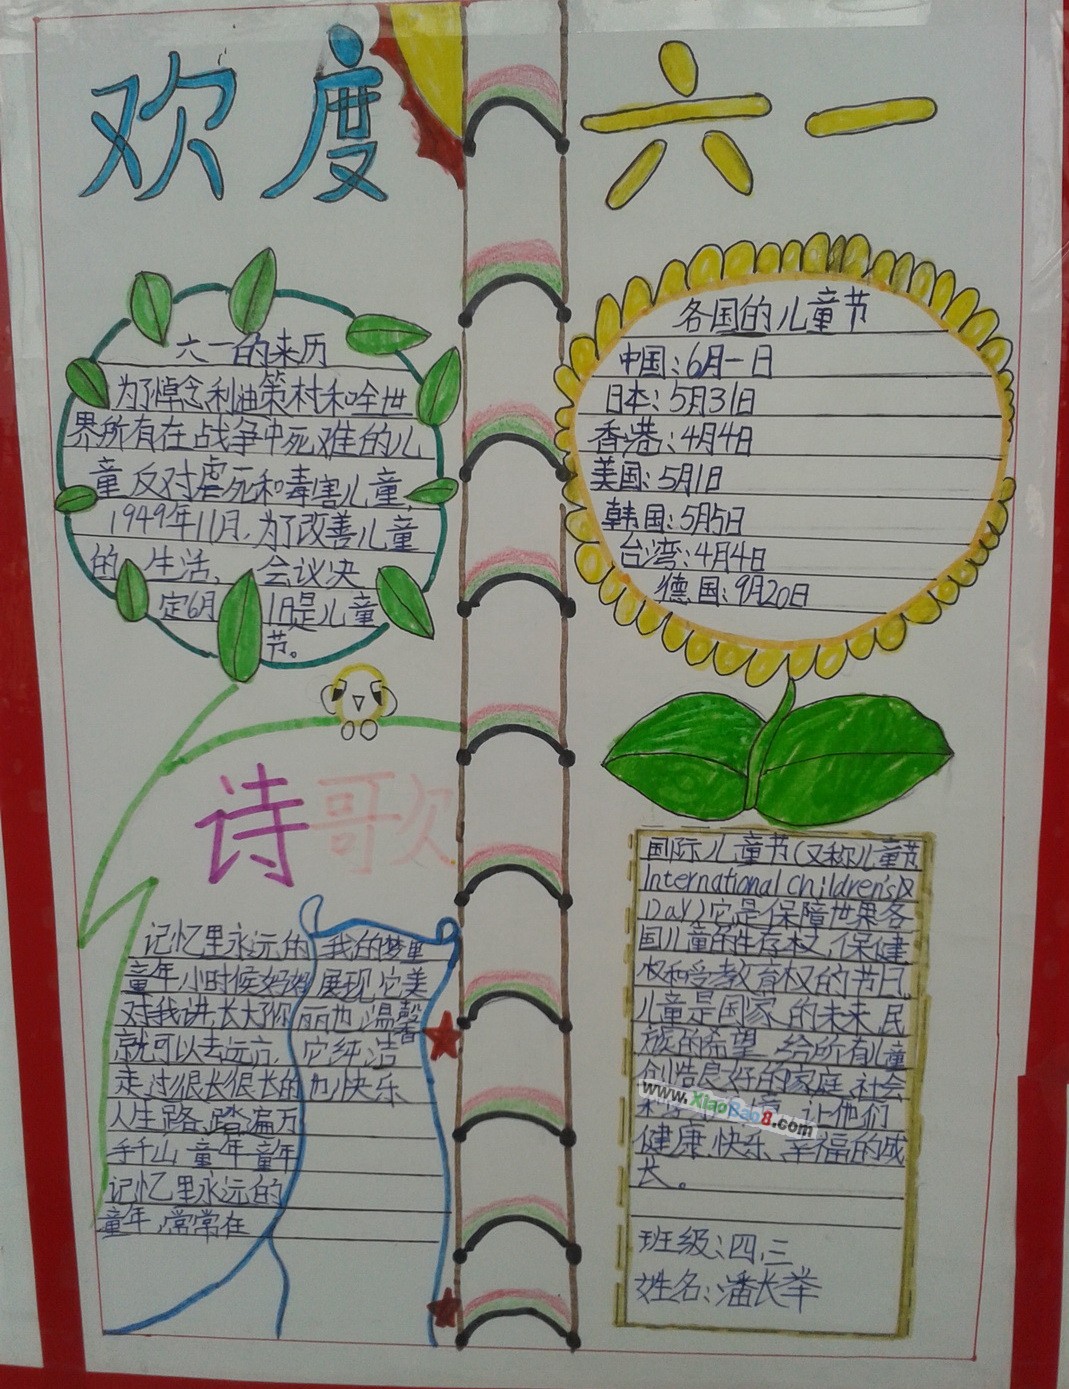 欢度六一
六一的来历
为了悼念利迪策村和全世
界所有在战争中死难的儿
童,反对虐死和毒害儿童,
1949年11月,为了改善儿童
的生活,会议决
定6月1日是儿童
节。
各国的儿童节
中国:6月一日
日本:5月31日
香港:4月4日
美国:5月1日
韩国:5月5日
台湾:4月4日
德国:9月20日
诗歌
记忆里永远的
童年,小时候妈妈
对我讲,长大了你
就可以去远方,
走过很长很长的
人生路,踏遍万
千山童年童年
记忆里永远的
童年,常常在
我的梦里
展现,它美
丽也温馨
它纯洁
也快乐
国际儿童节(又称儿童节
International children's
Day)它是保障世界各
国儿童的生存权,保健
权和受教育权的节日。
儿童是国家的未来,民
族的希望,给所有儿童
创造良好的家庭、社会
让他们
健康、快乐、幸福的成
长。
班级:四、三
姓名:潘长举
www.XiaoBao8.com